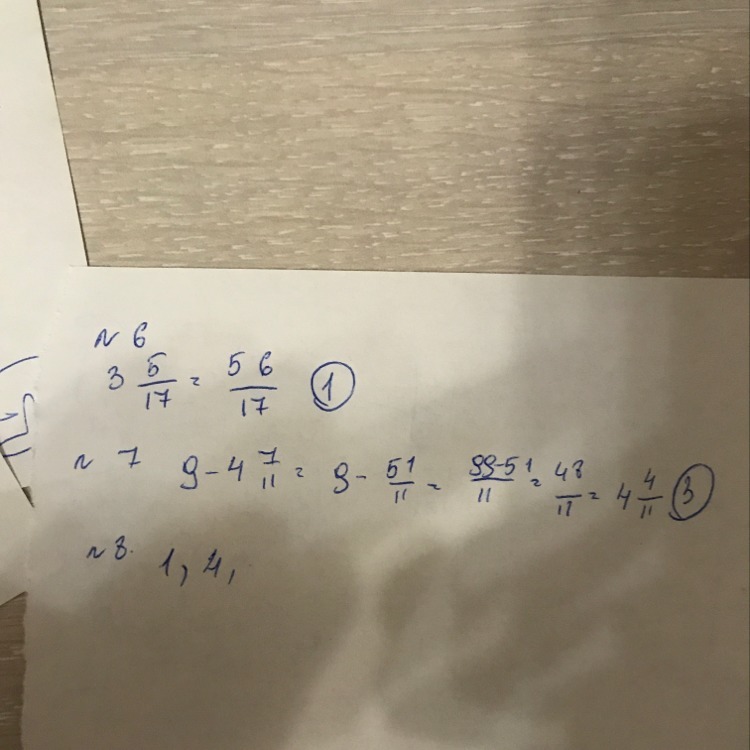 № 6
3 5/17 = 56/17 ①
№ 7 9 - 4 7/11 = 9 - 51/11 = 99-51/11 = 48/11 = 4 4/11 ③
№ 8. 1, 4,